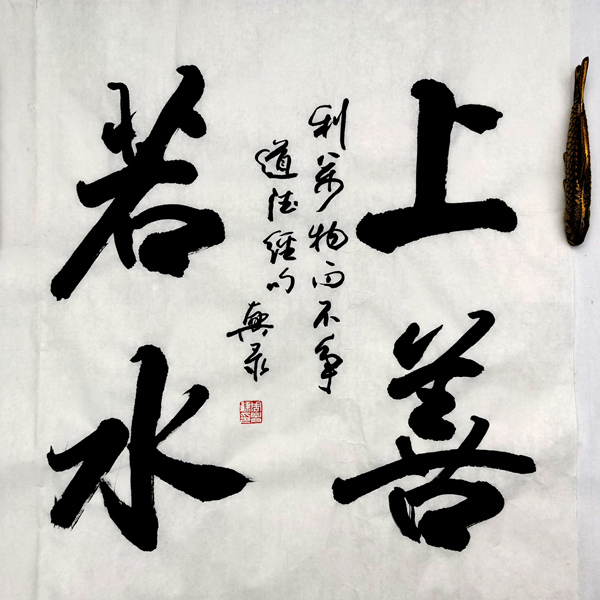 上善
若水
利萬物而不争
道德經句
興录